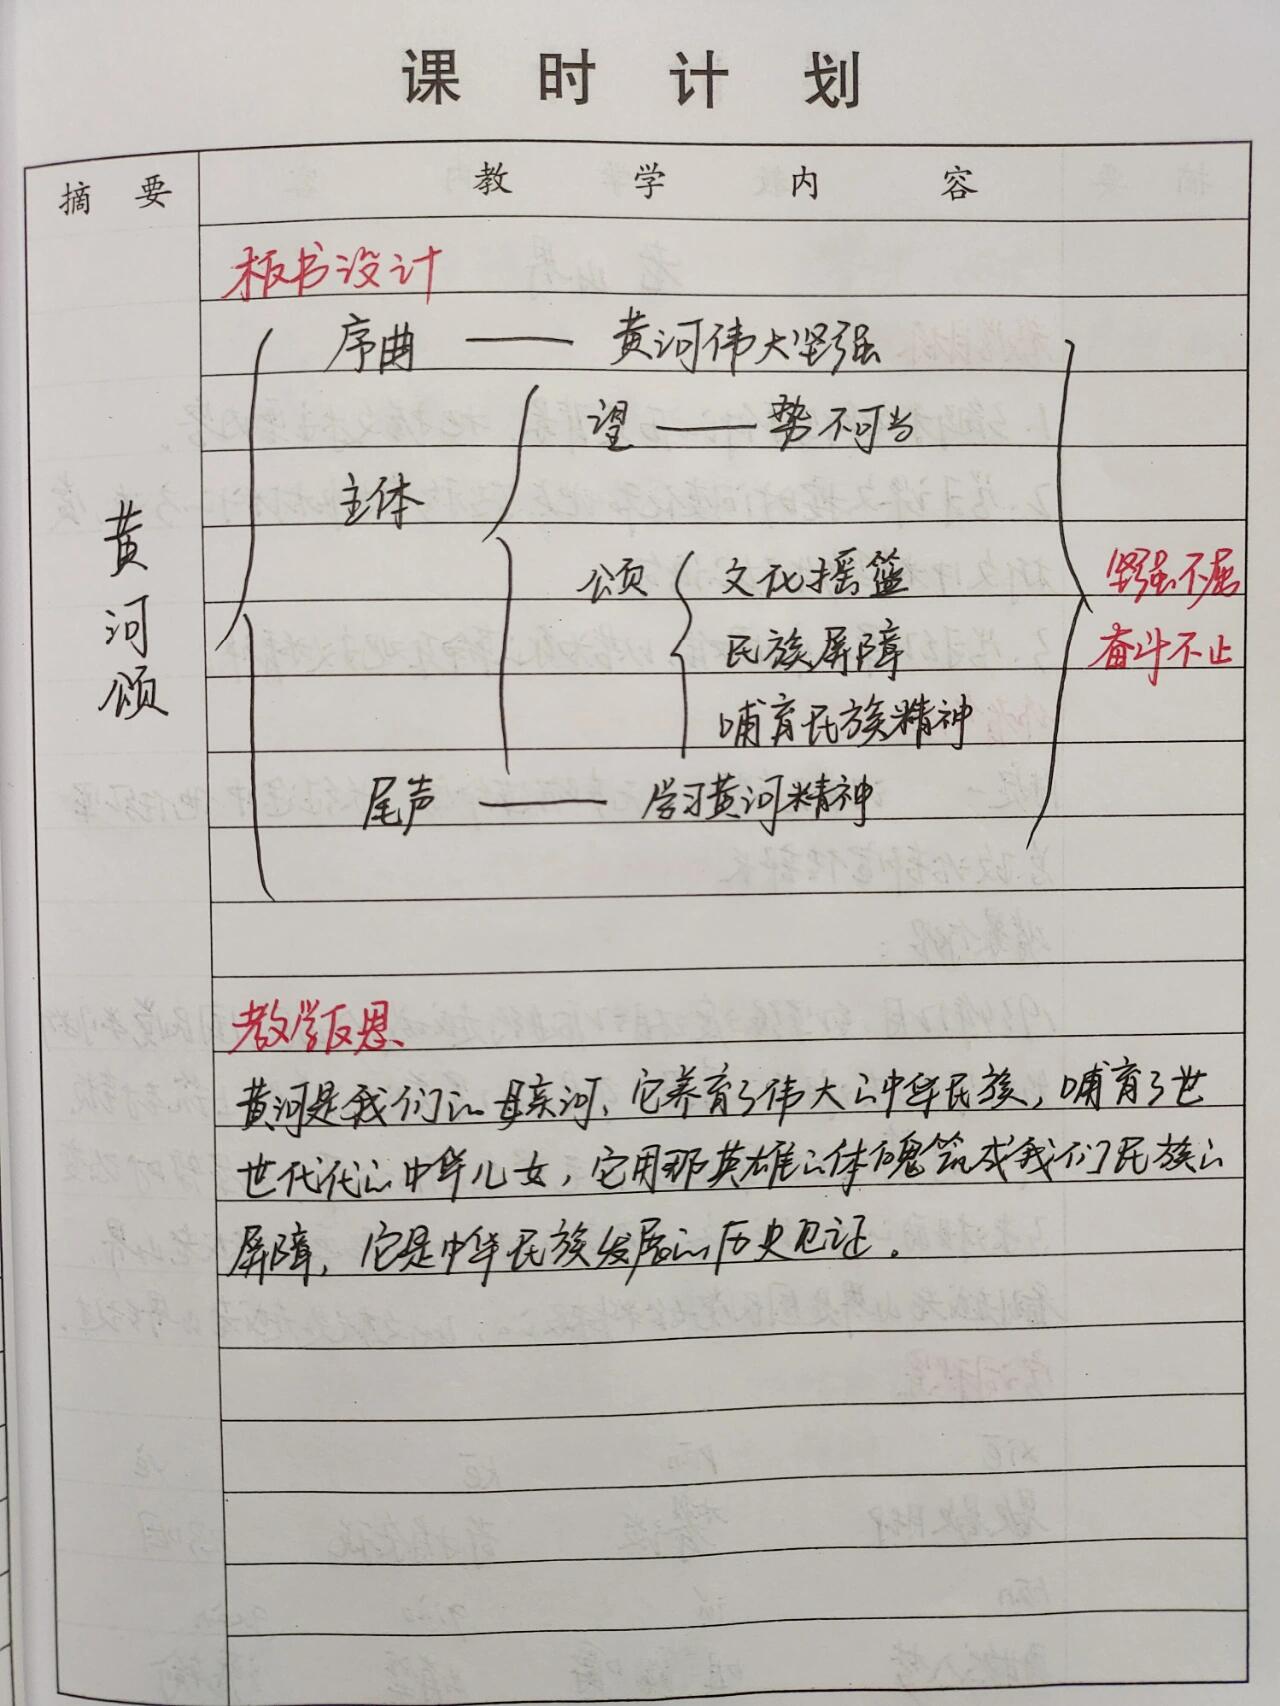 课时计划
摘要 教学内容
板书设计
序曲 —— 黄河伟大坚强
望 —— 势不可当
主体
颂 文化摇篮
民族屏障
哺育民族精神
坚强不屈
奋斗不止
尾声 —— 学习黄河精神
黄河颂
教学反思
黄河是我们的母亲河、它养育了伟大的中华民族，哺育了世
世代代的中华儿女，它用那英雄的体魄筑成我们民族的
屏障，它是中华民族发展的历史见证。